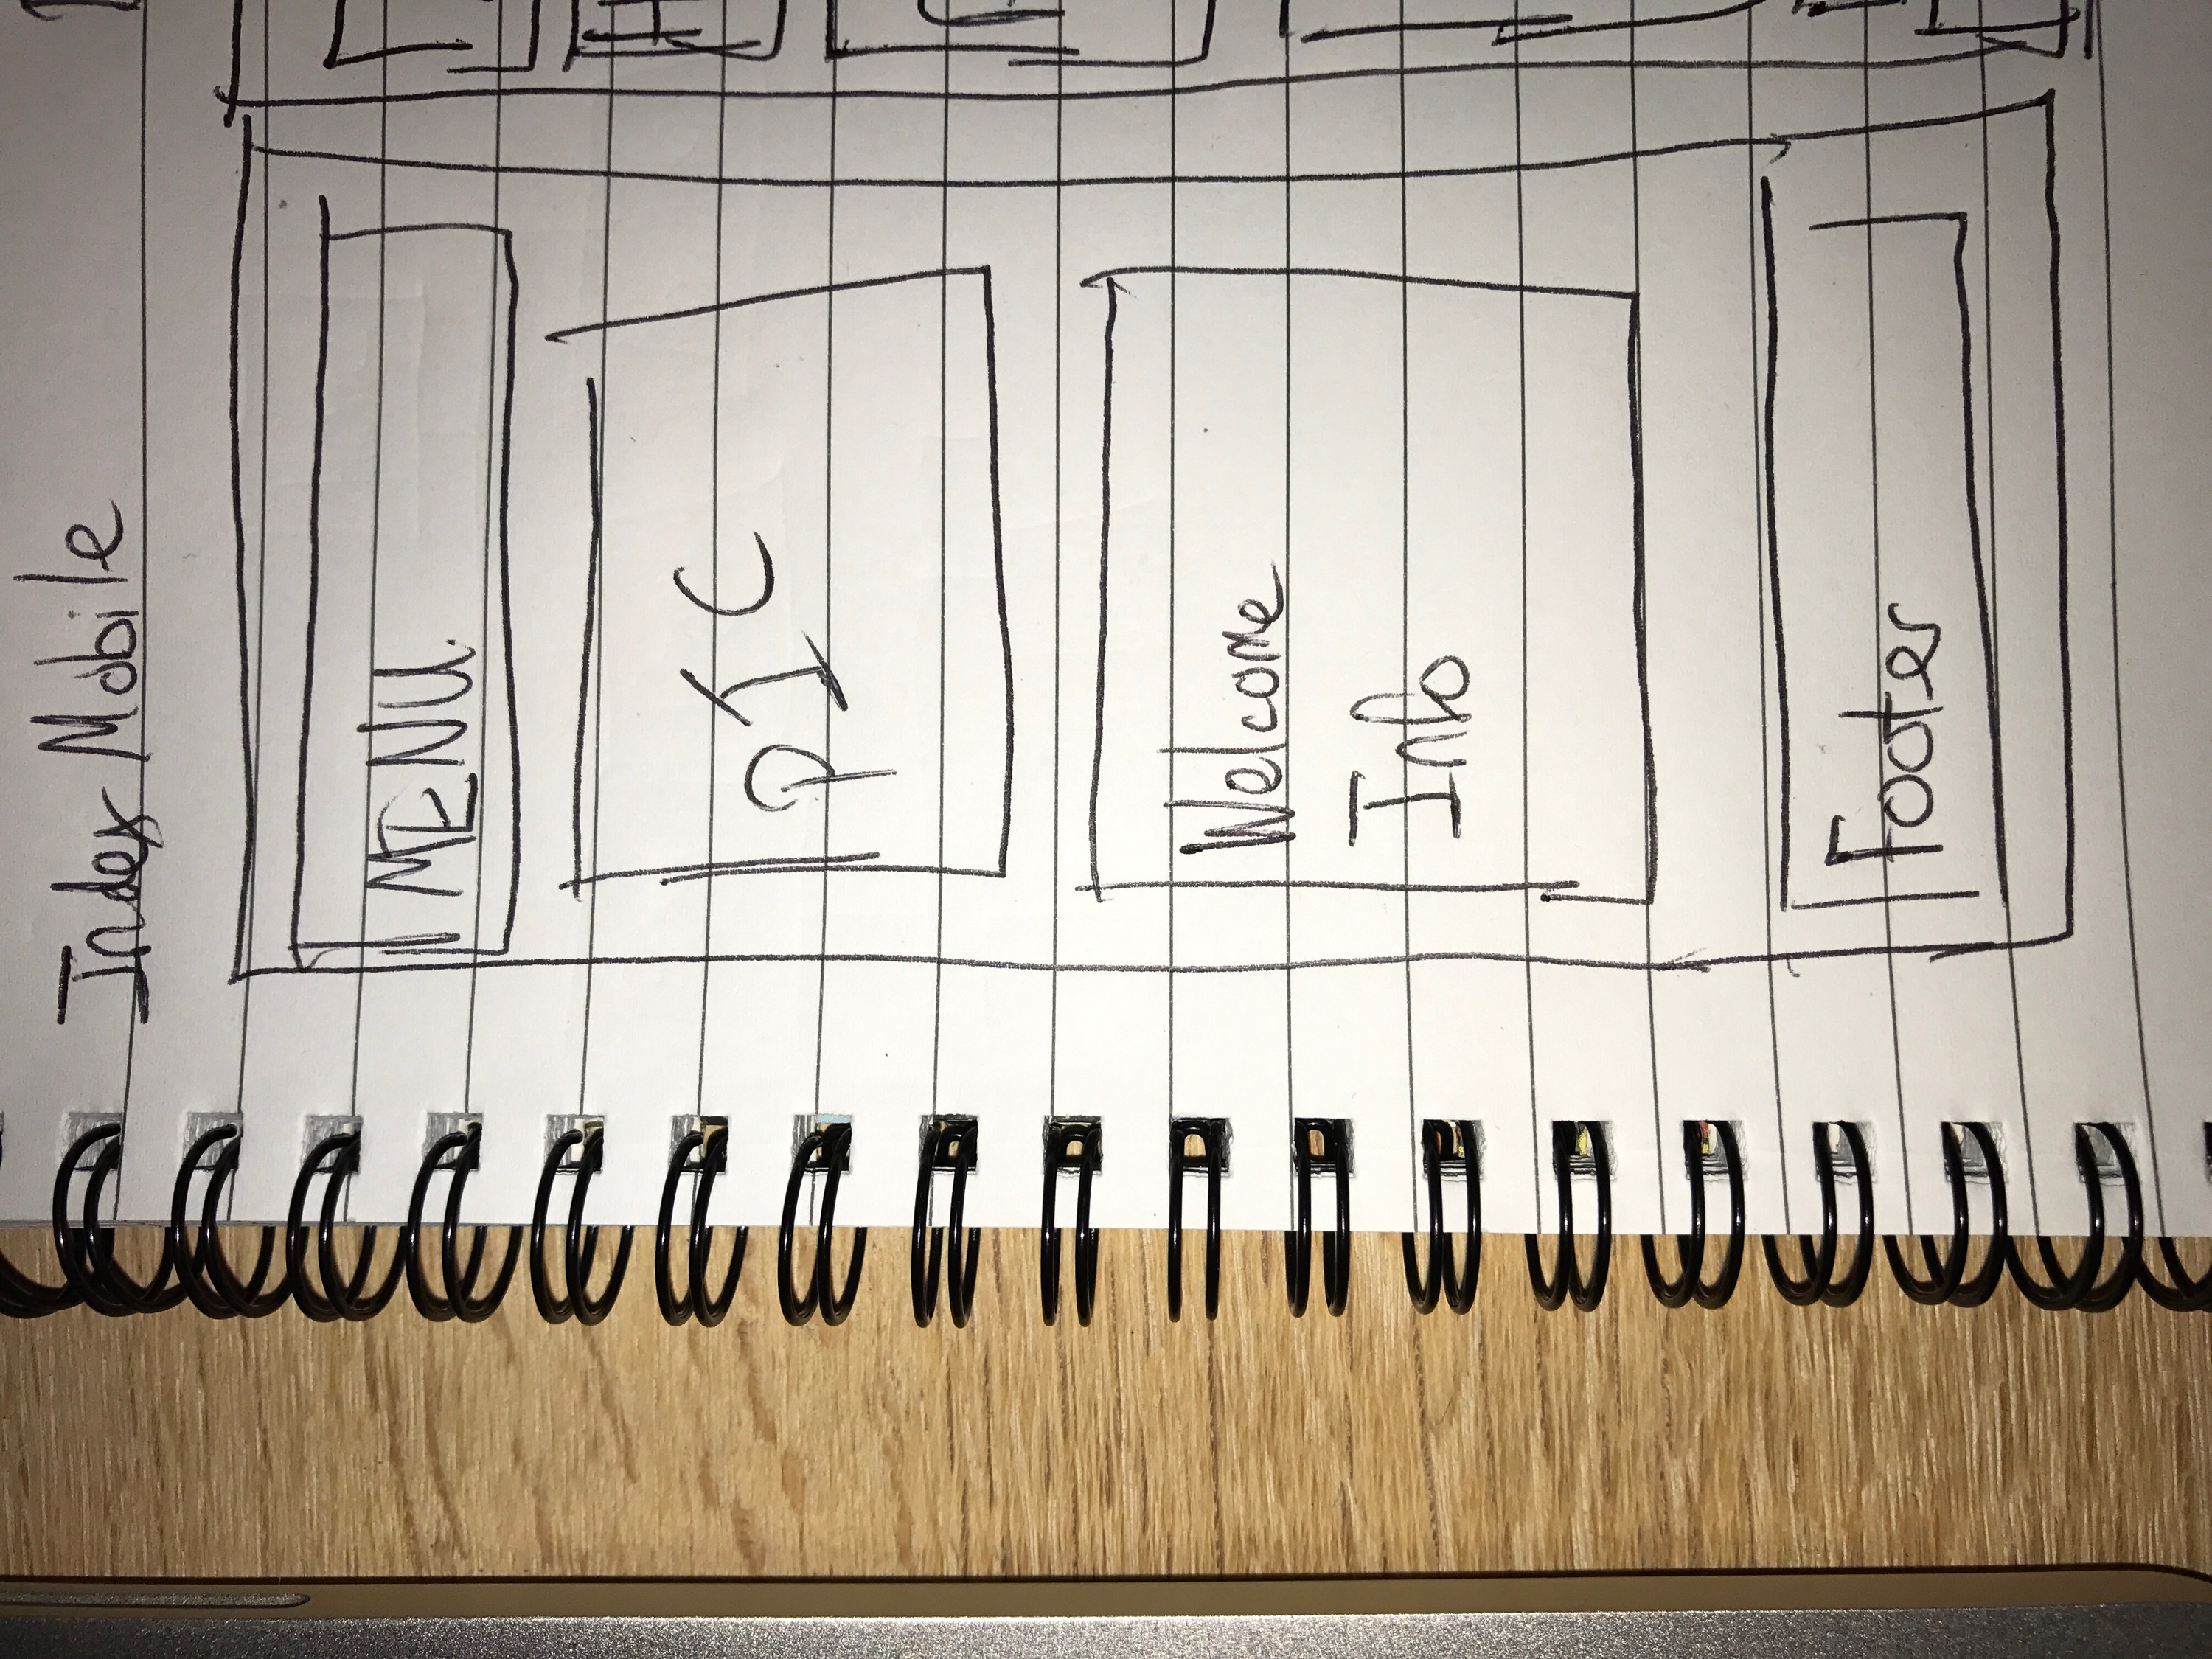 Index Mobile
MENU
PIC
Welcome
Info
Footer